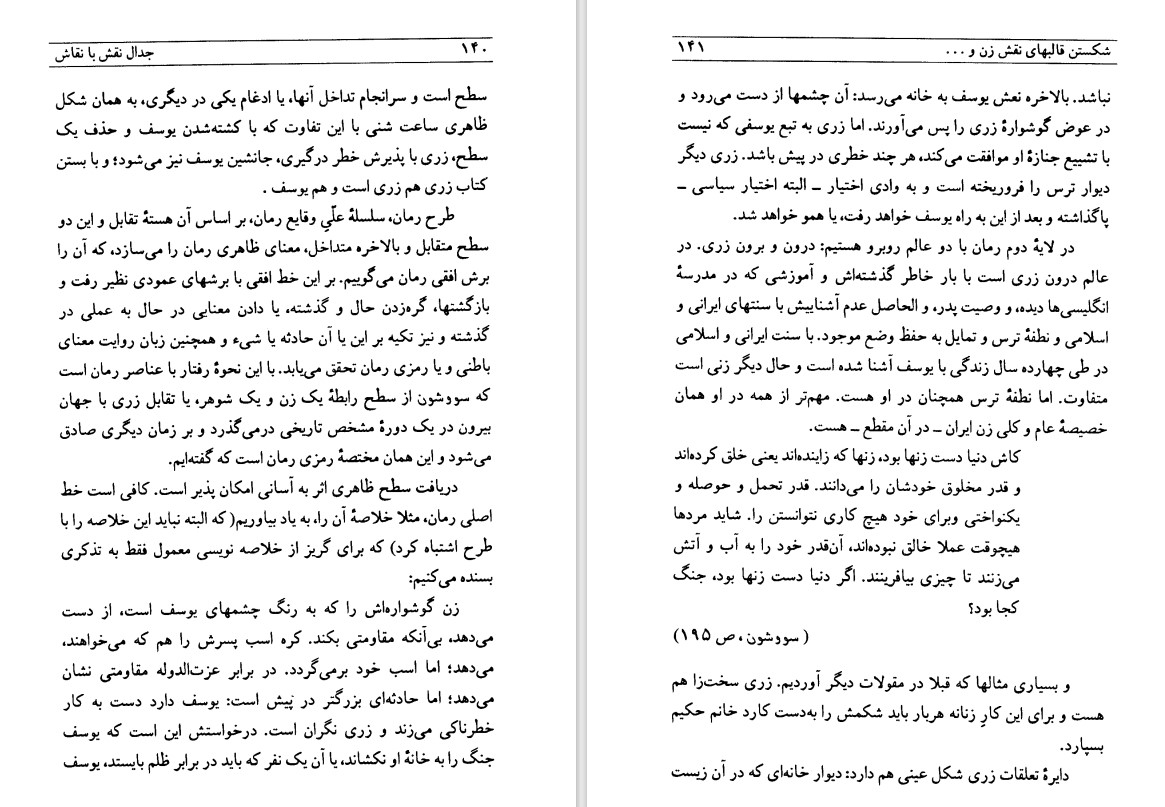 ۱۴۰ جدال نقش با نقاش
سطح است و سرانجام تداخل آنها، یا ادغام یکی در دیگری، به همان شکل
ظاهری ساعت شنی با این تفاوت که با کشته‌شدن یوسف و حذف یک
سطح، زری با پذیرش خطر درگیری، جانشین یوسف نیز می‌شود؛ و با بستن
کتاب زری هم زری است و هم یوسف .
طرح رمان، سلسلهٔ علّیِ وقایع رمان، بر اساس آن هستهٔ تقابل و این دو
سطح متقابل و بالاخره متداخل، معنای ظاهری رمان را می‌سازد، که آن را
برش افقی رمان می‌گوییم. بر این خط افقی با برشهای عمودی نظیر رفت و
بازگشتها، گره‌زدن حال و گذشته، یا دادن معنایی در حال به عملی در
گذشته و نیز تکیه بر این یا آن حادثه یا شیء و همچنین زبان روایت معنای
باطنی و یا رمزی رمان تحقق می‌یابد. با این نحوهٔ رفتار با عناصر رمان است
که سووشون از سطح رابطهٔ یک زن و یک شوهر، یا تقابل زری با جهان
بیرون در یک دورهٔ مشخص تاریخی درمی‌گذرد و بر زمان دیگری صادق
می‌شود و این همان مختصهٔ رمزی رمان است که گفته‌ایم.
دریافت سطح ظاهری اثر به آسانی امکان پذیر است. کافی است خط
اصلی رمان، مثلا خلاصهٔ آن را، به یاد بیاوریم( که البته نباید این خلاصه را با
طرح اشتباه کرد) که برای گریز از خلاصه نویسی معمول فقط به تذکری
بسنده می‌کنیم:
زن گوشواره‌اش را که به رنگ چشمهای یوسف است، از دست
می‌دهد، بی‌آنکه مقاومتی بکند. کره اسب پسرش را هم که می‌خواهند،
می‌دهد؛ اما اسب خود برمی‌گردد. در برابر عزت‌الدوله مقاومتی نشان
می‌دهد؛ اما حادثه‌ای بزرگتر در پیش است: یوسف دارد دست به کار
خطرناکی می‌زند و زری نگران است. درخواستش این است که یوسف
جنگ را به خانهٔ او نکشاند، یا آن یک نفر که باید در برابر ظلم بایستد، یوسف
شکستن قالبهای نقش زن و ... ۱۴۱
نباشد. بالاخره نعش یوسف به خانه می‌رسد: آن چشمها از دست می‌رود و
در عوض گوشوارهٔ زری را پس می‌آورند. اما زری به تبع یوسفی که نیست
با تشییع جنازهٔ او موافقت می‌کند، هر چند خطری در پیش باشد. زری دیگر
دیوار ترس را فروریخته است و به وادی اختیار ــ البته اختیار سیاسی ــ
پاگذاشته و بعد از این به راه یوسف خواهد رفت، یا همو خواهد شد.
در لایهٔ دوم رمان با دو عالم روبرو هستیم: درون و برون زری. در
عالم درون زری است با بار خاطر گذشته‌اش و آموزشی که در مدرسهٔ
انگلیسی‌ها دیده، و وصیت پدر، و الحاصل عدم آشناییش با سنتهای ایرانی و
اسلامی و نطفهٔ ترس و تمایل به حفظ وضع موجود. با سنت ایرانی و اسلامی
در طی چهارده سال زندگی با یوسف آشنا شده است و حال دیگر زنی است
متفاوت. اما نطفهٔ ترس همچنان در او هست. مهم‌تر از همه در او همان
خصیصهٔ عام و کلی زن ایران ــ در آن مقطع ــ هست.
کاش دنیا دست زنها بود، زنها که زاینده‌اند یعنی خلق کرده‌اند
و قدر مخلوق خودشان را می‌دانند. قدر تحمل و حوصله و
یکنواختی وبرای خود هیچ کاری نتوانستن را. شاید مردها
هیچوقت عملا خالق نبوده‌اند، آن‌قدر خود را به آب و آتش
می‌زنند تا چیزی بیافرینند. اگر دنیا دست زنها بود، جنگ
کجا بود؟
( سووشون ، ص ۱۹۵)
و بسیاری مثالها که قبلا در مقولات دیگر آوردیم. زری سخت‌زا هم
هست و برای این کارِ زنانه هربار باید شکمش را به‌دست کارد خانم حکیم
بسپارد.
دایرهٔ تعلقات زری شکل عینی هم دارد: دیوار خانه‌ای که در آن زیست